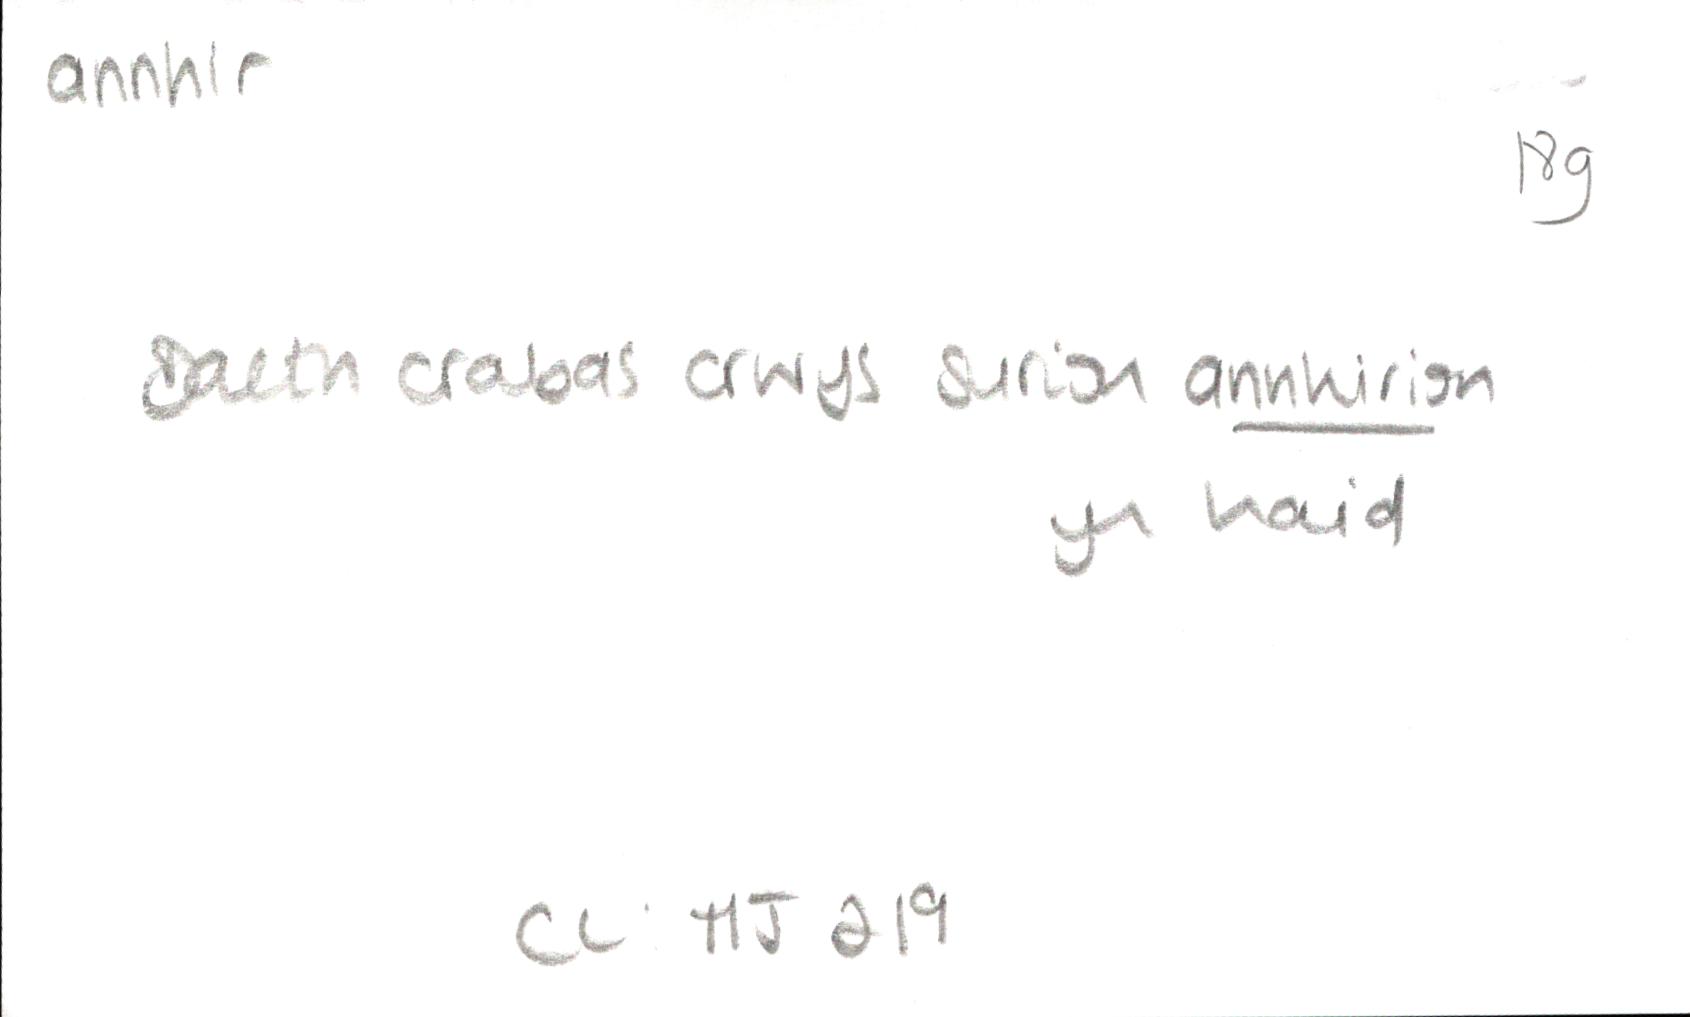 annhir
18g
Daeth crabas crwys surion annhirion
yn haid
CL: HJ 219